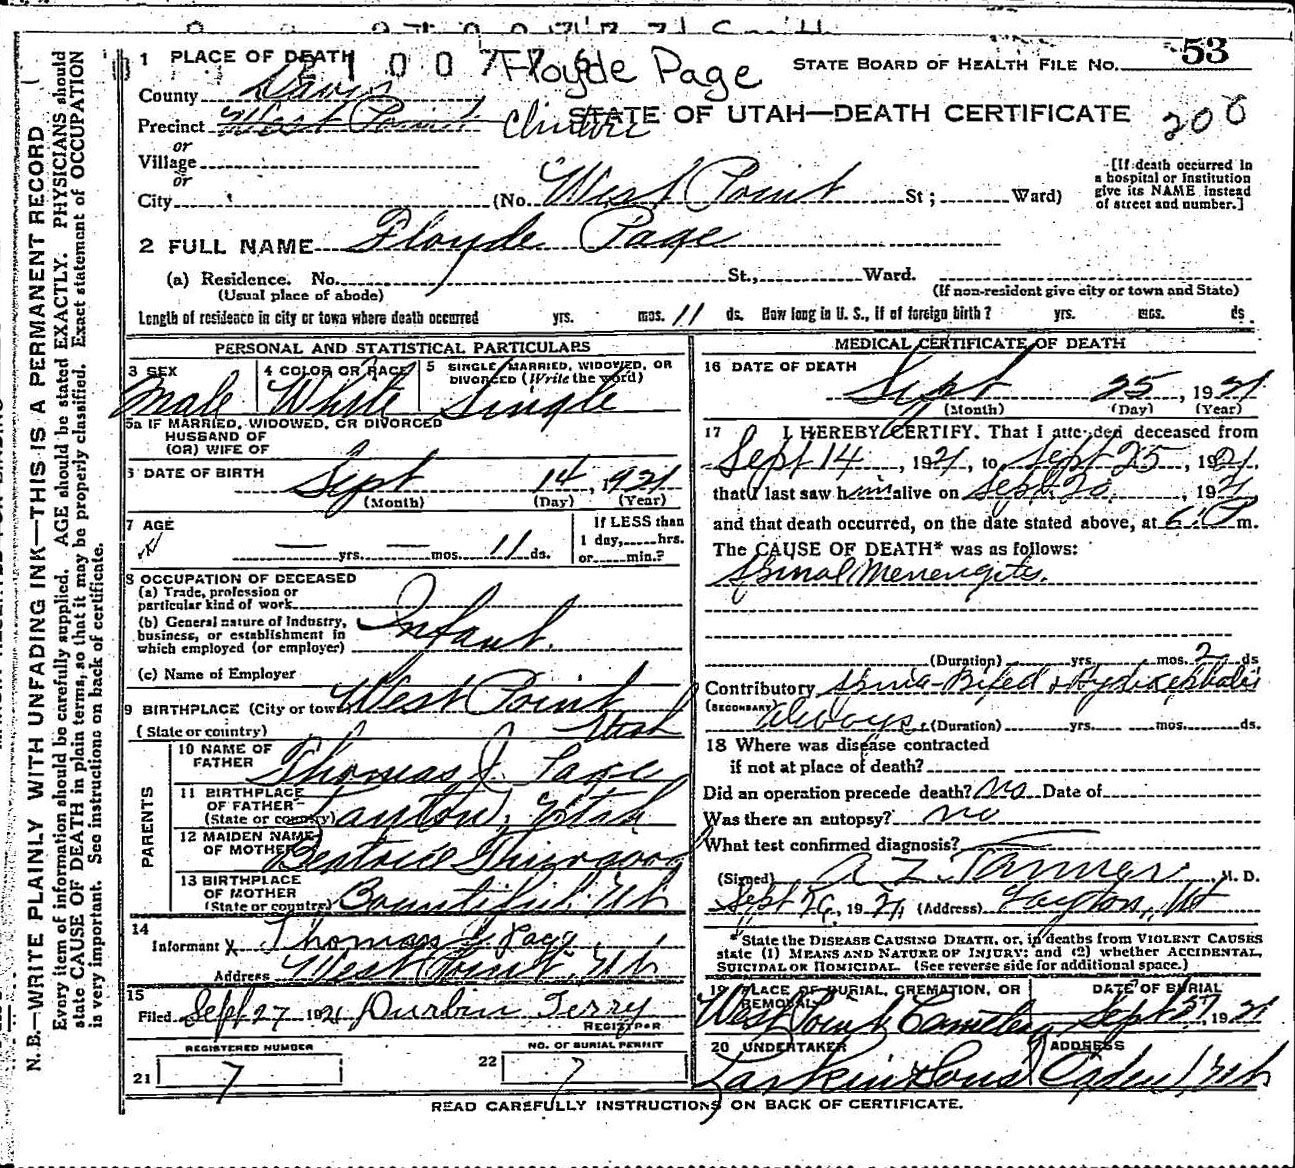 1 PLACE OF DEATH
1 0 0 7 7 Floyde Page
STATE BOARD OF HEALTH FILE NO. 53
County Davis
STATE OF UTAH—DEATH CERTIFICATE
200
Precinct West Point Clinton
or
Village
or
City (No. West Point St; Ward)
[If death occurred in
a hospital or institution
give its NAME instead
of street and number.]
2 FULL NAME Floyde Page
(a) Residence. No. St., Ward.
(Usual place of abode) (If non-resident give city or town and State)
Length of residence in city or town where death occurred yrs. mos. 11 ds. How long in U. S., if of foreign birth? yrs. mos. ds
PERSONAL AND STATISTICAL PARTICULARS
3 SEX
Male
4 COLOR OR RACE
White
5 SINGLE, MARRIED, WIDOWED, OR
DIVORCED (Write the word)
Single
5a IF MARRIED, WIDOWED, OR DIVORCED
HUSBAND OF
(OR) WIFE OF
6 DATE OF BIRTH
Sept 14, 1921
(Month) (Day) (Year)
7 AGE
— yrs. — mos. 11 ds.
If LESS than
1 day, hrs.
or min.?
8 OCCUPATION OF DECEASED
(a) Trade, profession or
particular kind of work
(b) General nature of Industry,
business, or establishment in
which employed (or employer)
Infant.
(c) Name of Employer
9 BIRTHPLACE (City or town) West Point
(State or country) Utah
PARENTS
10 NAME OF
FATHER Thomas J. Page
11 BIRTHPLACE
OF FATHER
(State or country) Utah
12 MAIDEN NAME
OF MOTHER Beatrice Thurgood
13 BIRTHPLACE
OF MOTHER
(State or country) Bountiful, Ut
14
Informant X Thomas J Page
Address West Point, Ut
15
Filed Sept 27 1921 Durbin Terry
REGISTRAR
REGISTERED NUMBER
21 7
NO. OF BURIAL PERMIT
22 7
MEDICAL CERTIFICATE OF DEATH
16 DATE OF DEATH
Sept 25, 1921
(Month) (Day) (Year)
17 I HEREBY CERTIFY, That I attended deceased from
Sept 14, 1921, to Sept 25, 1921.
that I last saw him alive on Sept 20, 1921
and that death occurred, on the date stated above, at 6:P m.
The CAUSE OF DEATH* was as follows:
Spinal Menengites.
(Duration) yrs. mos. 2 ds
Contributory Spina-Bifed & Hydrocephalis
(SECONDARY) Always. (Duration) yrs. mos. ds.
18 Where was disease contracted
if not at place of death?
Did an operation precede death? No Date of
Was there an autopsy? no
What test confirmed diagnosis?
(Signed) A Z Tanner M. D.
Sept 26, 1921, (Address) Layton, Ut
*State the DISEASE CAUSING DEATH, or, in deaths from VIOLENT CAUSES
state (1) MEANS AND NATURE OF INJURY; and (2) whether ACCIDENTAL,
SUICIDAL OR HOMICIDAL. (See reverse side for additional space.)
19 PLACE OF BURIAL, CREMATION, OR
REMOVAL
West Point Cemetery
DATE OF BURIAL
Sept 27, 1921
20 UNDERTAKER
Larkin & Sons
ADDRESS
Ogden Utah
READ CAREFULLY INSTRUCTIONS ON BACK OF CERTIFICATE.
N. B.—WRITE PLAINLY WITH UNFADING INK—THIS IS A PERMANENT RECORD
Every item of information should be carefully supplied. AGE should be stated EXACTLY. PHYSICIANS should
state CAUSE OF DEATH in plain terms, so that it may be properly classified. Exact statement of OCCUPATION
is very important. See instructions on back of certificate.